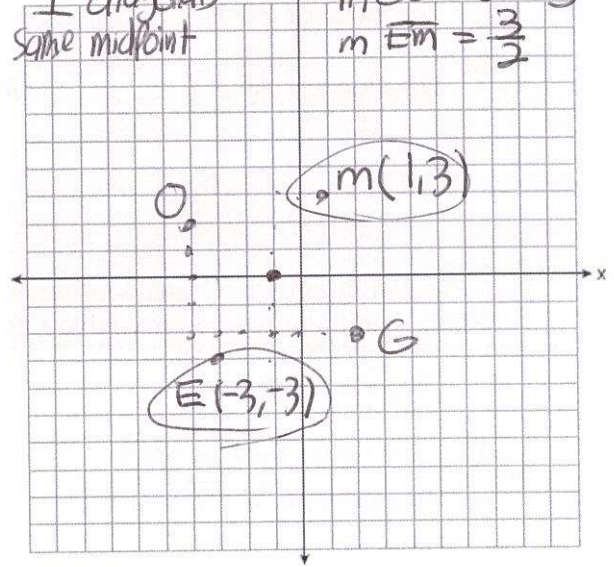 same midpoint
m EM = 3/2
O
m(1,3)
x
G
E(-3,-3)